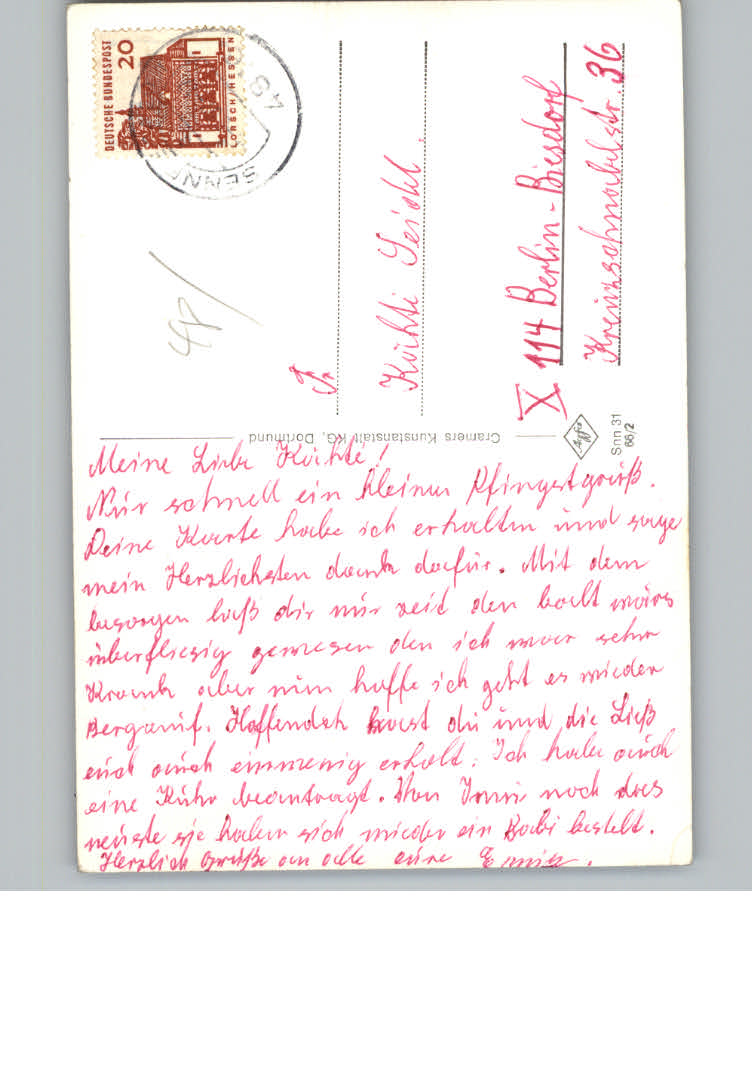 DEUTSCHE BUNDESPOST
20
LORSCH/HESSEN
48
SENNE
Fr
Käthi Seidel.
X 114 Berlin-Biesdorf
Kreuzschnabelstr. 36
Cramers Kunstanstalt KG, Dortmund
Snn 31
66/2
Meine Liebe Käthe!
Nur schnell ein kleiner Pfingstgruß.
Deine Karte habe ich erhalten und sage
mein Herzlichsten dank dafür. Mit dem
besorgen laß dir nur zeid den balt wäre
überfliesig gewesen den ich war sehr
Krank aber nun hoffe ich geht es wieder
Bergauf. Hoffendch hast du und die Ließ
euch auch einwenig erholt. Ich habe auch
eine Kuhr beantragt. Von Inni noch das
neuste sie haben sich wieder ein Babi bestelt.
Herzlich Grüße an alle eure